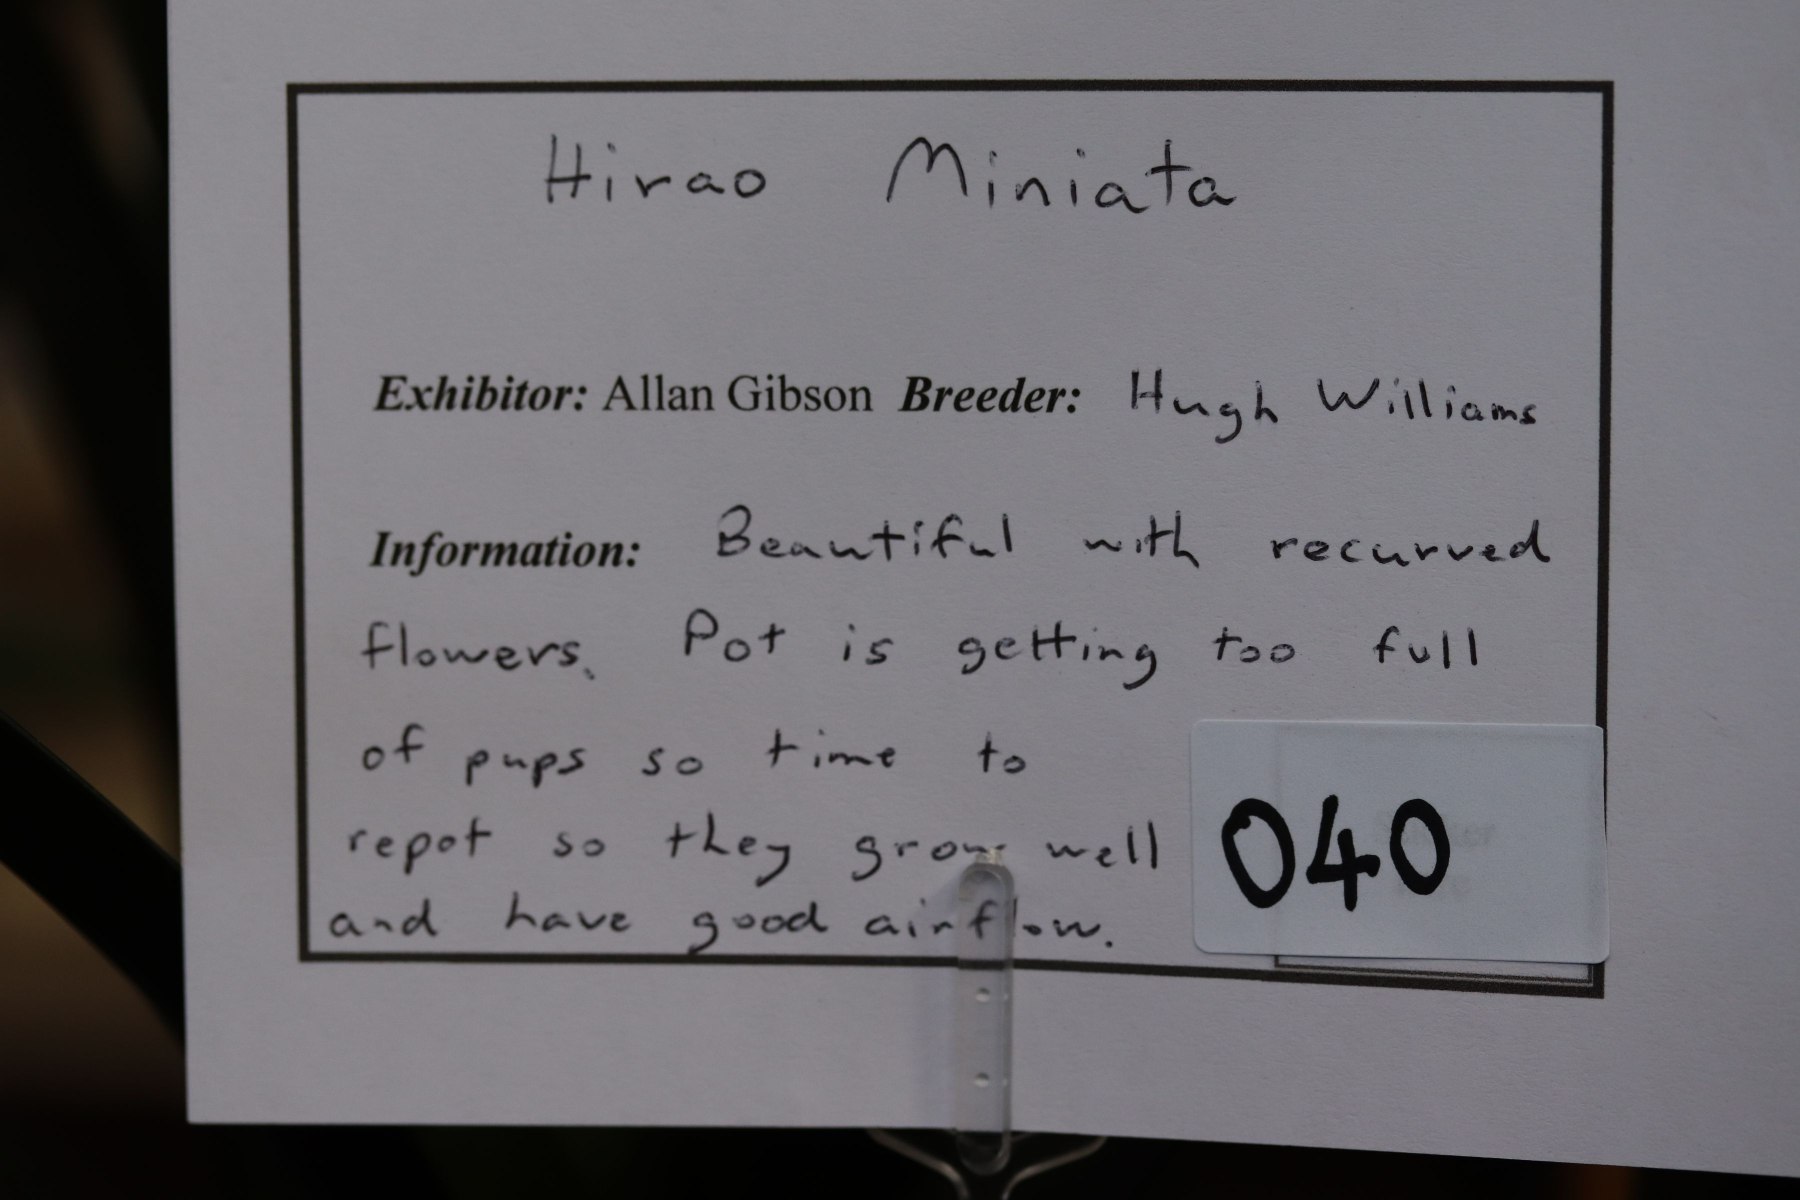 Hirao Miniata
Exhibitor: Allan Gibson Breeder: Hugh Williams
Information: Beautiful with recurved
flowers. Pot is getting too full
of pups so time to
repot so they grow well
and have good airflow.
040